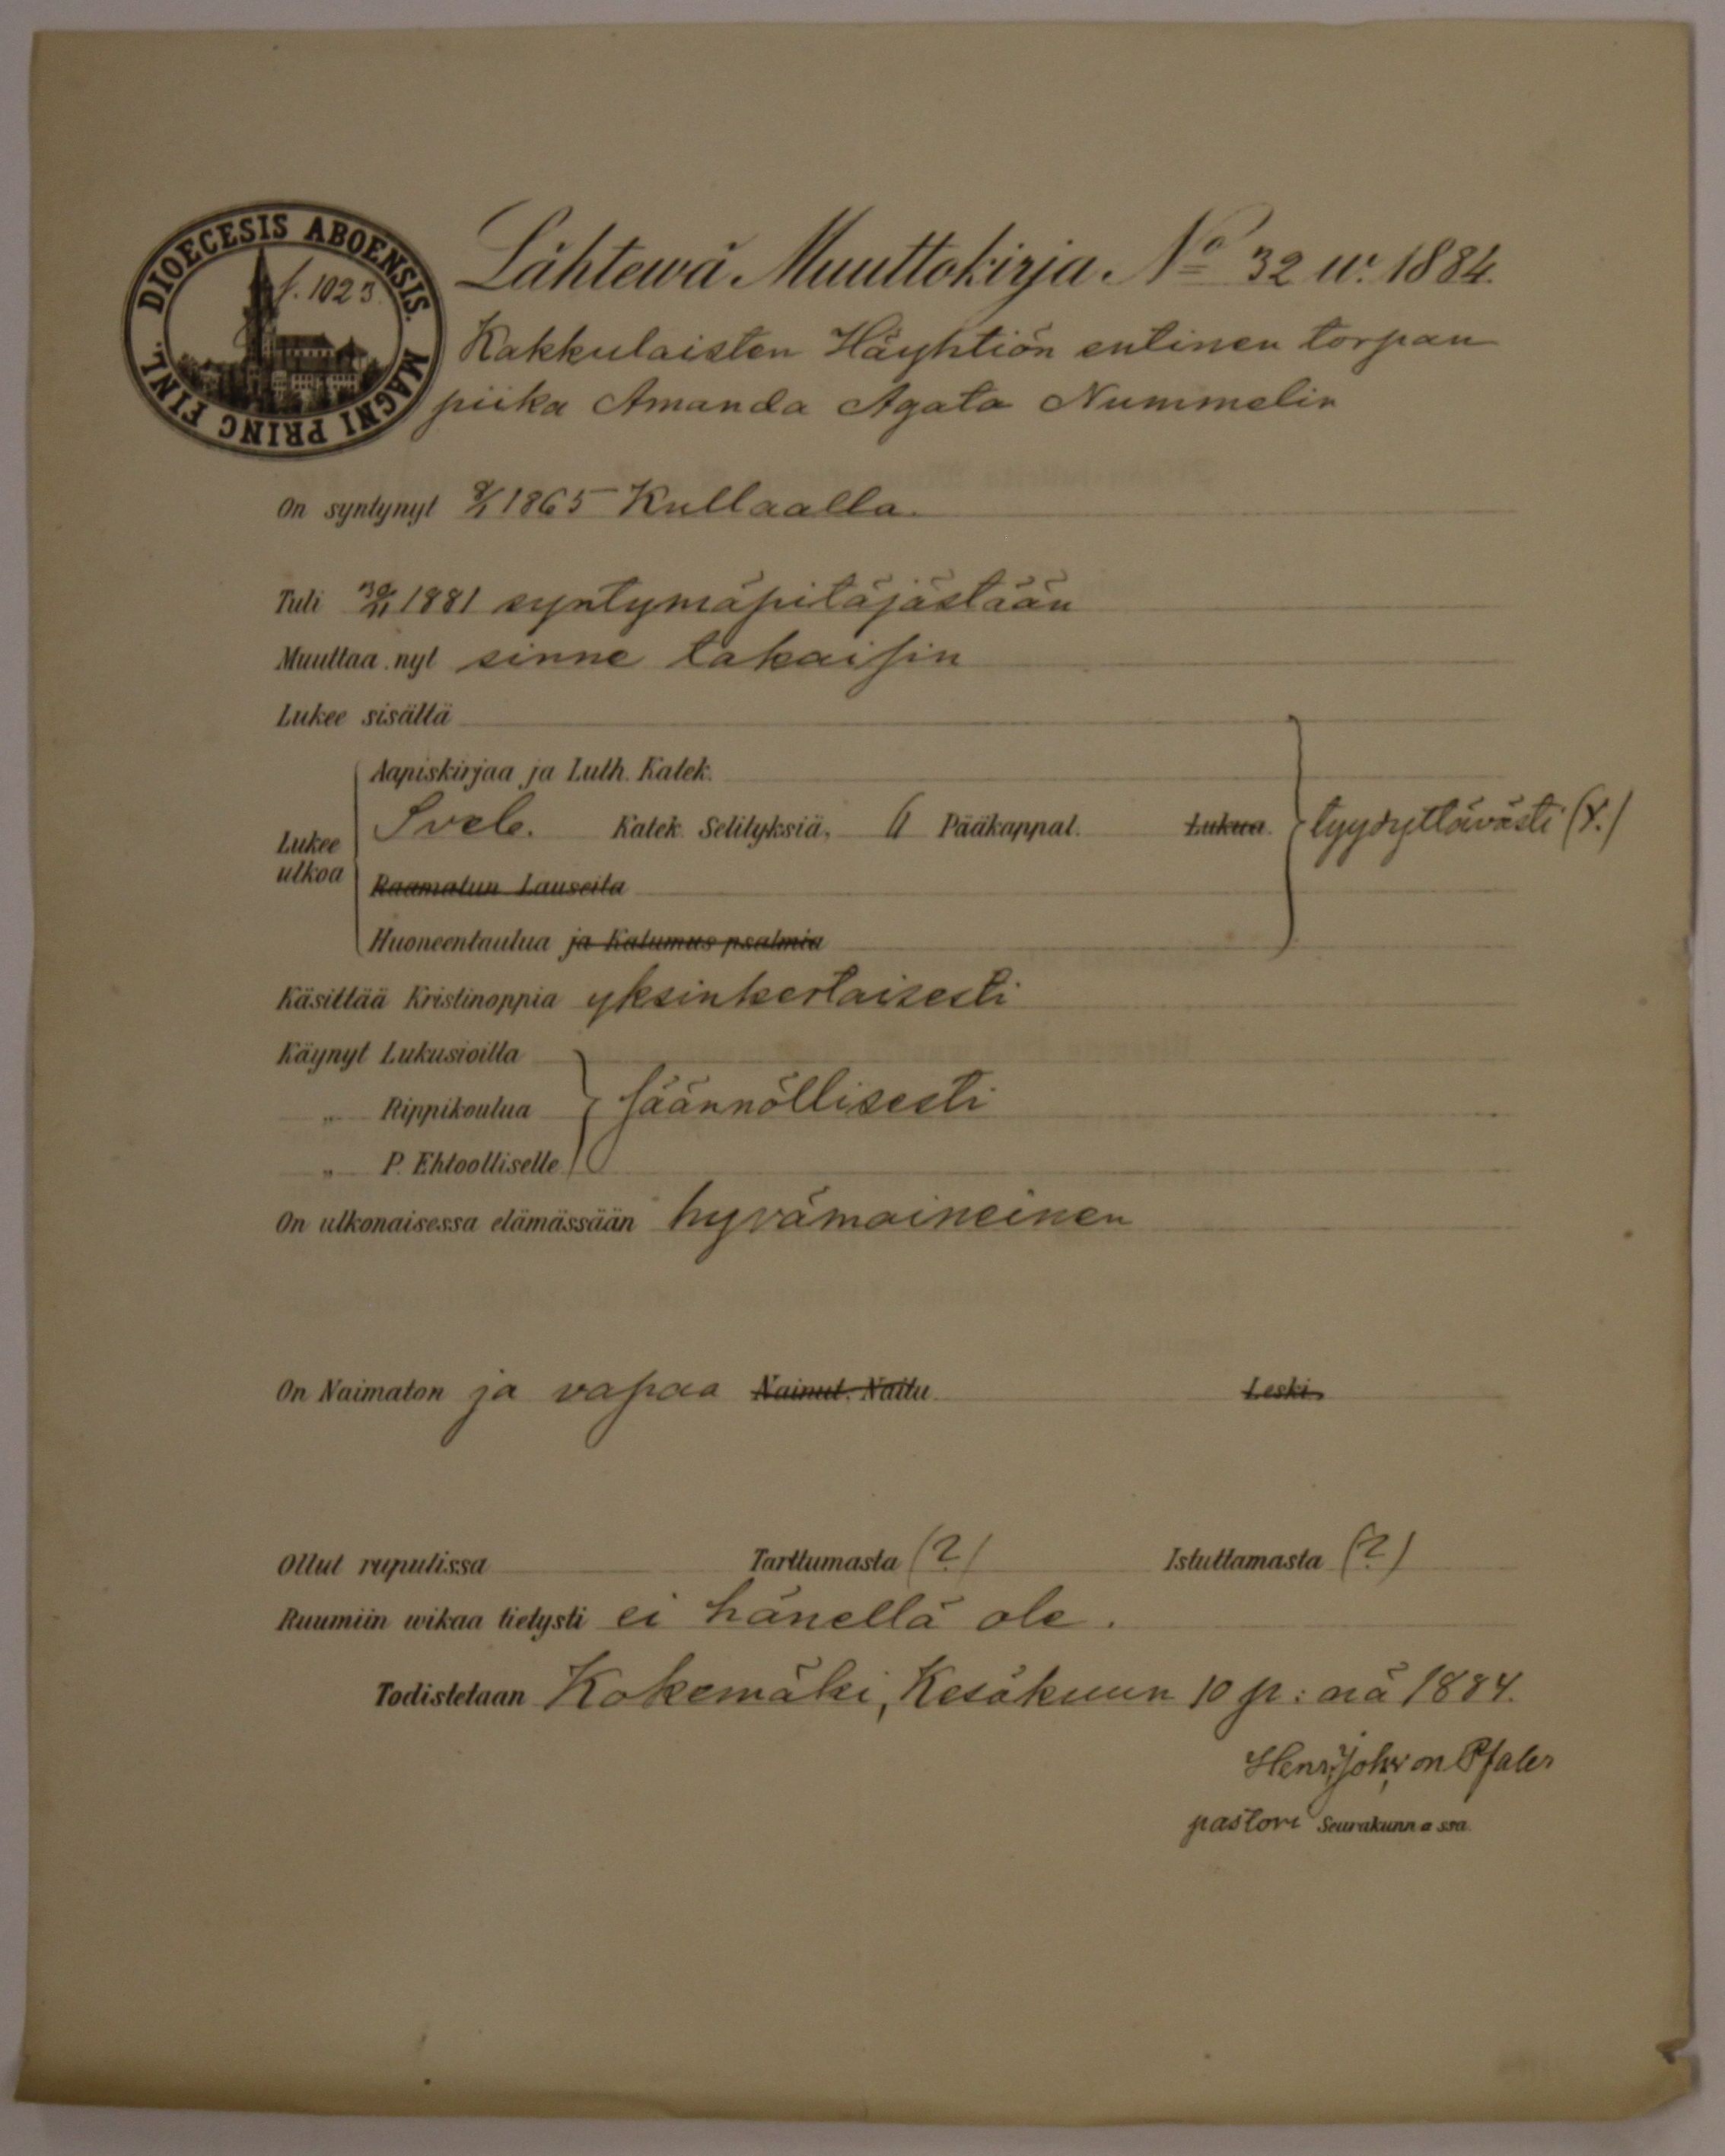 DIOECESIS ABOENSIS. MAGNI PRINC FINL.
f. 1023.
Lähtewä Muuttokirja No 32 w. 1884.
Kakkulaisten Häyhtiön entinen torpan
piika Amanda Agata Nummelin
On syntynyt 8/1 1865 Kullaalla.
Tuli 30/11 1881 syntymäpitäjästään
Muuttaa nyt sinne takaisin
Lukee sisältä
Lukee ulkoa
Aapiskirjaa ja Luth. Katek.
Sveb. Katek. Selityksiä, 6 Pääkappal. Lukua. tyydyttävästi
Raamatun Lauseita
Huoneentaulua ja Katumus psalmia
Käsittää Kristinoppia yksinkertaisesti
Käynyt Lukusioilla
„ Rippikoulua säännöllisesti
„ P. Ehtoolliselle
On ulkonaisessa elämässään hyvämaineinen
On Naimaton ja vapaa Nainut, Naitu. Leski.
Ollut rupulissa Tarttumasta (?) Istuttamasta (?)
Ruumiin wikaa tietysti ei hänellä ole.
Todistetaan Kokemäki, Kesäkuun 10 p:nä 1884.
Henr. Joh. von Pfaler
pastori Seurakunnassa.